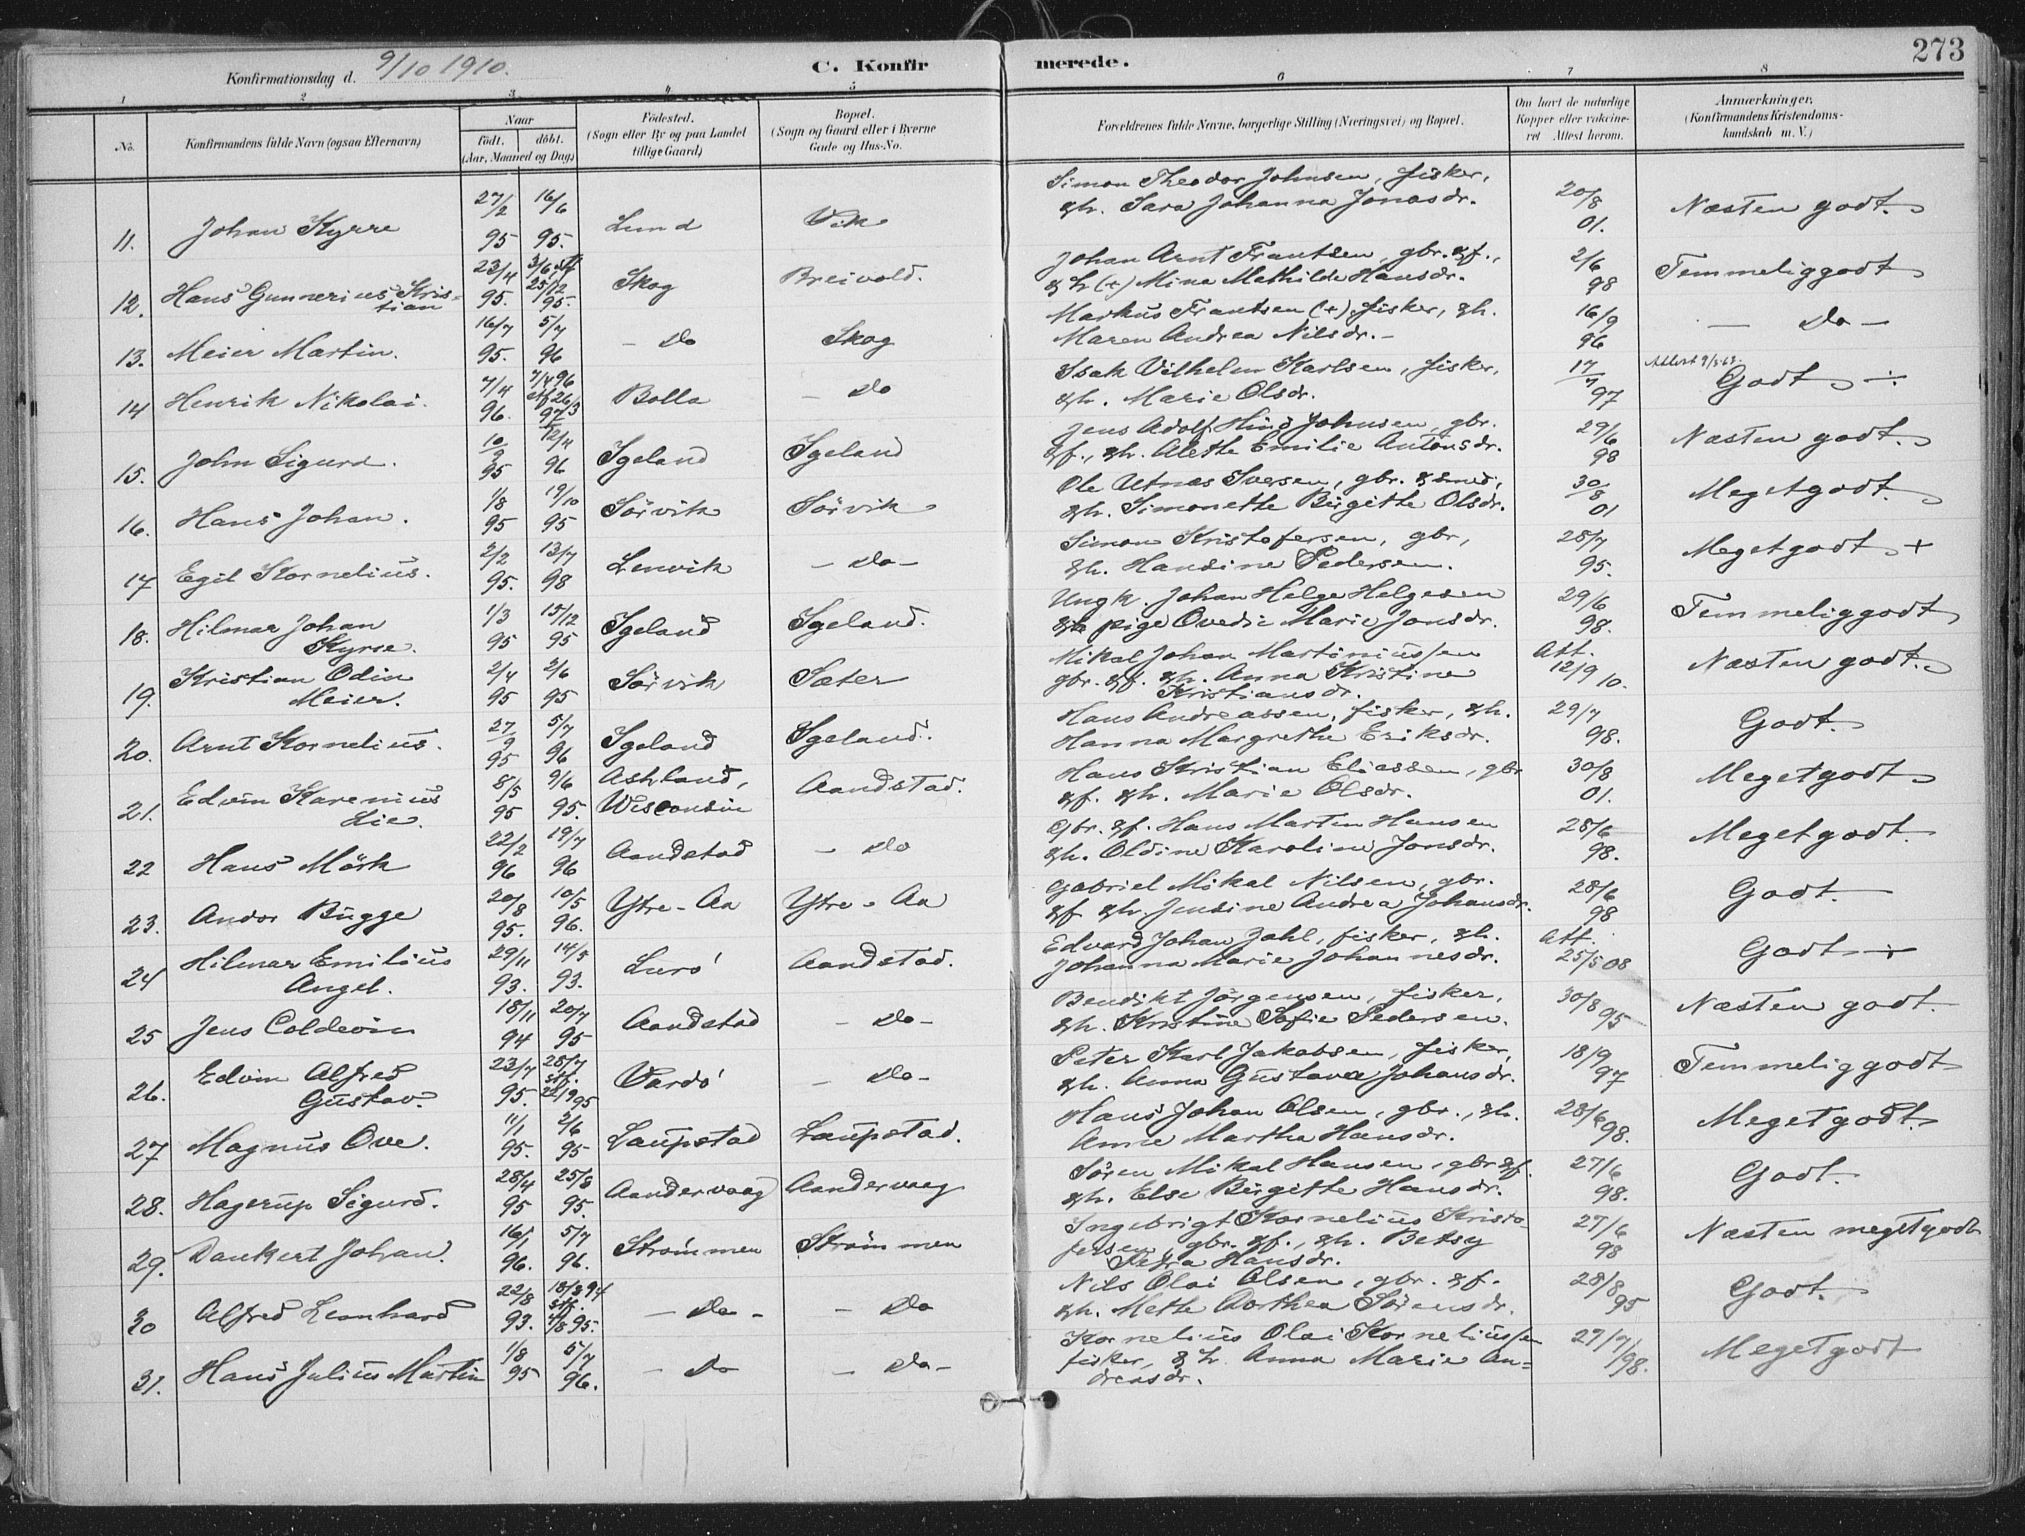 273
Konfirmationsdag d. 9/10 1910.
C. Konfirmerede.
1 2 3 4 5 6 7 8
No. Konfirmandens fulde Navn (ogsaa Efternavn) Naar født. døbt. (Aar, Maaned og Dag) Fødested. (Sogn eller By og paa Landet tillige Gaard) Bopæl. (Sogn og Gaard eller i Byerne Gade og Hus-No. Forældrenes fulde Navne, borgerlige Stilling (Næringsvei) og Bopæl. Om havt de naturlige Kopper eller vaccineret Attest herom. Anmærkninger. (Konfirmandens Kristendomskundskab m. V.)
11. Johan Kyrre 27/2 95 16/6 95. Lund Vik Simon Theodor Johnsen, fisker, &h. Sara Johanna Jonasdr. 20/8 01. Næsten godt.
12. Hans Gunnerius Kristian 23/4 95. 3/6, stf 25/12 95. Skog Breivold. Johan Arnt Frantsen, gbr. &f., & h (+) Mina Mathilde Hansdr. 2/6 98 Temmelig godt
13. Meier Martin. 16/7 95. 5/7 96 — Do Skog Markus Frantsen (+), fisker, &h. Maren Andrea Nilsdr. — 16/9 96 — Do —
14 Henrik Nikolai. 7/4 96. 7/4 96 stf 26/3 97 Bolla — Do Isak Vilhelm Karlsen, fisker, &h. Marie Olsdr. 17/7 97 Attest 9/5 63. Godt ÷
15. John Sigurd. 10/9 95 12/4 96 Igeland Igeland Jens Adolf Hind Johnsen, gbr. &f., &h. Alethe Emilie Antonsdr. 29/6 98 Næsten godt.
16. Hans Johan. 1/8 95 19/10 95 Sörvik Sörvik Ole Utnæs Iversen, gbr. & smed, &h. Simonette Birgitte Olsdr. 30/8 01 Meget godt.
17 Egil Kornelius. 2/2 95. 13/7 98 Lenvik — Do — Simon Kristofersen, gbr, &h. Hansine Pedersen. 28/7 95. Meget godt +
18. Hilmar Johan Kyrre. 1/3 95 15/12 95 Igeland Igeland. Ungk. Johan Helge Helgesen & pige Ovedie Marie Jonsdr. 29/6 98. Temmelig godt
19. Kristian Odin Meier. 2/4 95 2/6 95 Sörvik Sæter Mikal Johan Martiniussen gbr. &f. &h. Anna Kristine Kristiansdr. Att. 12/9 10. Næsten godt.
20. Arnt Kornelius. 27/9 95 5/7 96 Igeland Igeland. Hans Andreassen, fisker, &h. Hanna Margrethe Eriksdr. 29/7 98. Godt.
21. Edvin Karenius Lie. 8/5 95 9/6 95. Ashland, Wisconsin Aandstad. Hans Kristian Eliassen, gbr &f. &h. Marie Olsdr. 30/8 01. Meget godt
22 Hans Mörk 22/2 96 19/7 96 Aandstad — Do Gbr. &f. Hans Marten Hansen &h. Oldine Karoline Jonsdr. 28/6 98. Meget godt.
23. Andor Bugge 20/8 95. 10/5 96. Ytre-Aa Ytre-Aa Gabriel Mikal Nilsen, gbr. &f &h. Jensine Andrea Johansdr. 28/6 98 Godt.
24 Hilmar Emilius Angel. 29/11 93. 14/5 93. Lurö Aandstad. Edvard Johan Jahl, fisker, &h. Johanna Marie Johannesdr. Att. 25/5 08 Godt +
25 Jens Coldevin 18/11 94 20/7 95 Aandstad — Do — Benedikt Jörgensen, fisker, &h. Kristine Sofie Pedersen. 30/8 95 Næsten godt.
26. Edvin Alfred Gustav. 23/7 95. 28/7 stf. 22/9 95 Vardö — Do — Peter Karl Jakobsen, fisker, &h. Anna Gustava Johansdr. 18/9 97 Temmelig godt
27 Magnus Ove. 11/1 95. 2/6 95 Laupstad Laupstad. Hans Johan Olsen, gbr., &h. Anne Martha Hansdr. 28/6 98. Meget godt.
28. Hagerup Sigurd. 28/4 95 25/8 95. Aandervaag Aandervaag Sören Mikal Hansen, gbr &f. &h. Else Birgitte Hansdr. 27/6 98. Godt.
29. Dankert Johan. 16/1 96. 5/7 96. Strömmen Strömmen Ingebrigt Kornelius Kristofersen, gbr. &f., &h. Betsy Petra Hansdr. 27/6 98 Næsten meget godt
30 Alfred Leonhard 22/8 93. 18/3 94 stf. 4/8 95. — Do — — Do Nils Olai Olsen, gbr. &f. &h. Mette Dorthea Sörensdr. 28/8 95 Godt.
31. Hans Julius Martin 1/8 95 5/7 96. — Do — Do — Kornelius Olai Korneliussen fisker, & h. Anna Marie Andreasdr. 27/7/98. Meget godt